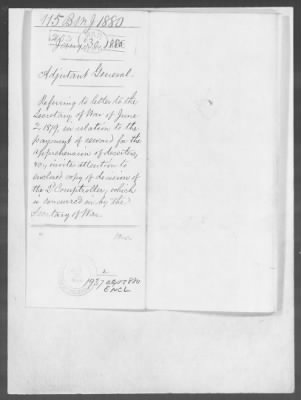 115 B M J 1880
Jany 30, 1880.
Adjutant General.
Referring to letter to the
Secretary of War of June
2. 1879, in relation to the
payment of reward for the
apprehension of deserters,
invite attention to
enclosed copy of decision of
the 2d Comptroller, which
is concurred in by the
Secretary of War.
1937
ENCL